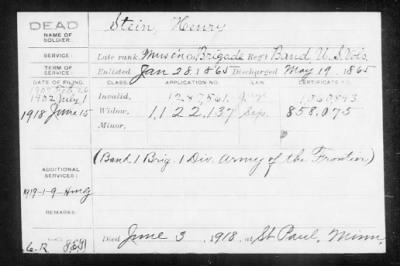 DEAD
NAME OF SOLDIER:
Stein, Henry
SERVICE:
Late rank, Musc'n Brigade Reg't Band U.S. Vols.
TERM OF SERVICE:
Enlisted Jan 28, 1865 Discharged May 19, 1865
DATE OF FILING. CLASS. APPLICATION NO. LAW. CERTIFICATE NO.
Invalid,
1902 July 1
1918 June 15 Widow, 1,122,137 Sep. 858,075
Minor,
(Band 1 Brig. 1 Div. Army of the Frontier)
ADDITIONAL SERVICES:
REMARKS:
Died June 3, 1918, at St Paul, Minn.